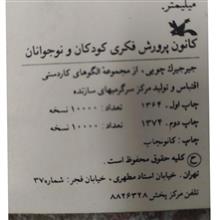 میلیمتر.
کانون پرورش فکری کودکان و نوجوانان
جیرجیرک چوبی، از مجموعهٔ الگوهای کاردستی
اقتباس و تولید مرکز سرگرمیهای سازنده
چاپ اول، ۱۳۶۴ تعداد: ۱۰۰۰۰ نسخه
چاپ دوم، ۱۳۷۴ تعداد: ۱۰۰۰۰ نسخه
چاپ: کانونچاپ
© کلیه حقوق محفوظ است.
تهران، خیابان استاد مطهری، خیابان فجر، شماره ۳۷
تلفن مرکز پخش ۸۸۲۶۳۲۸